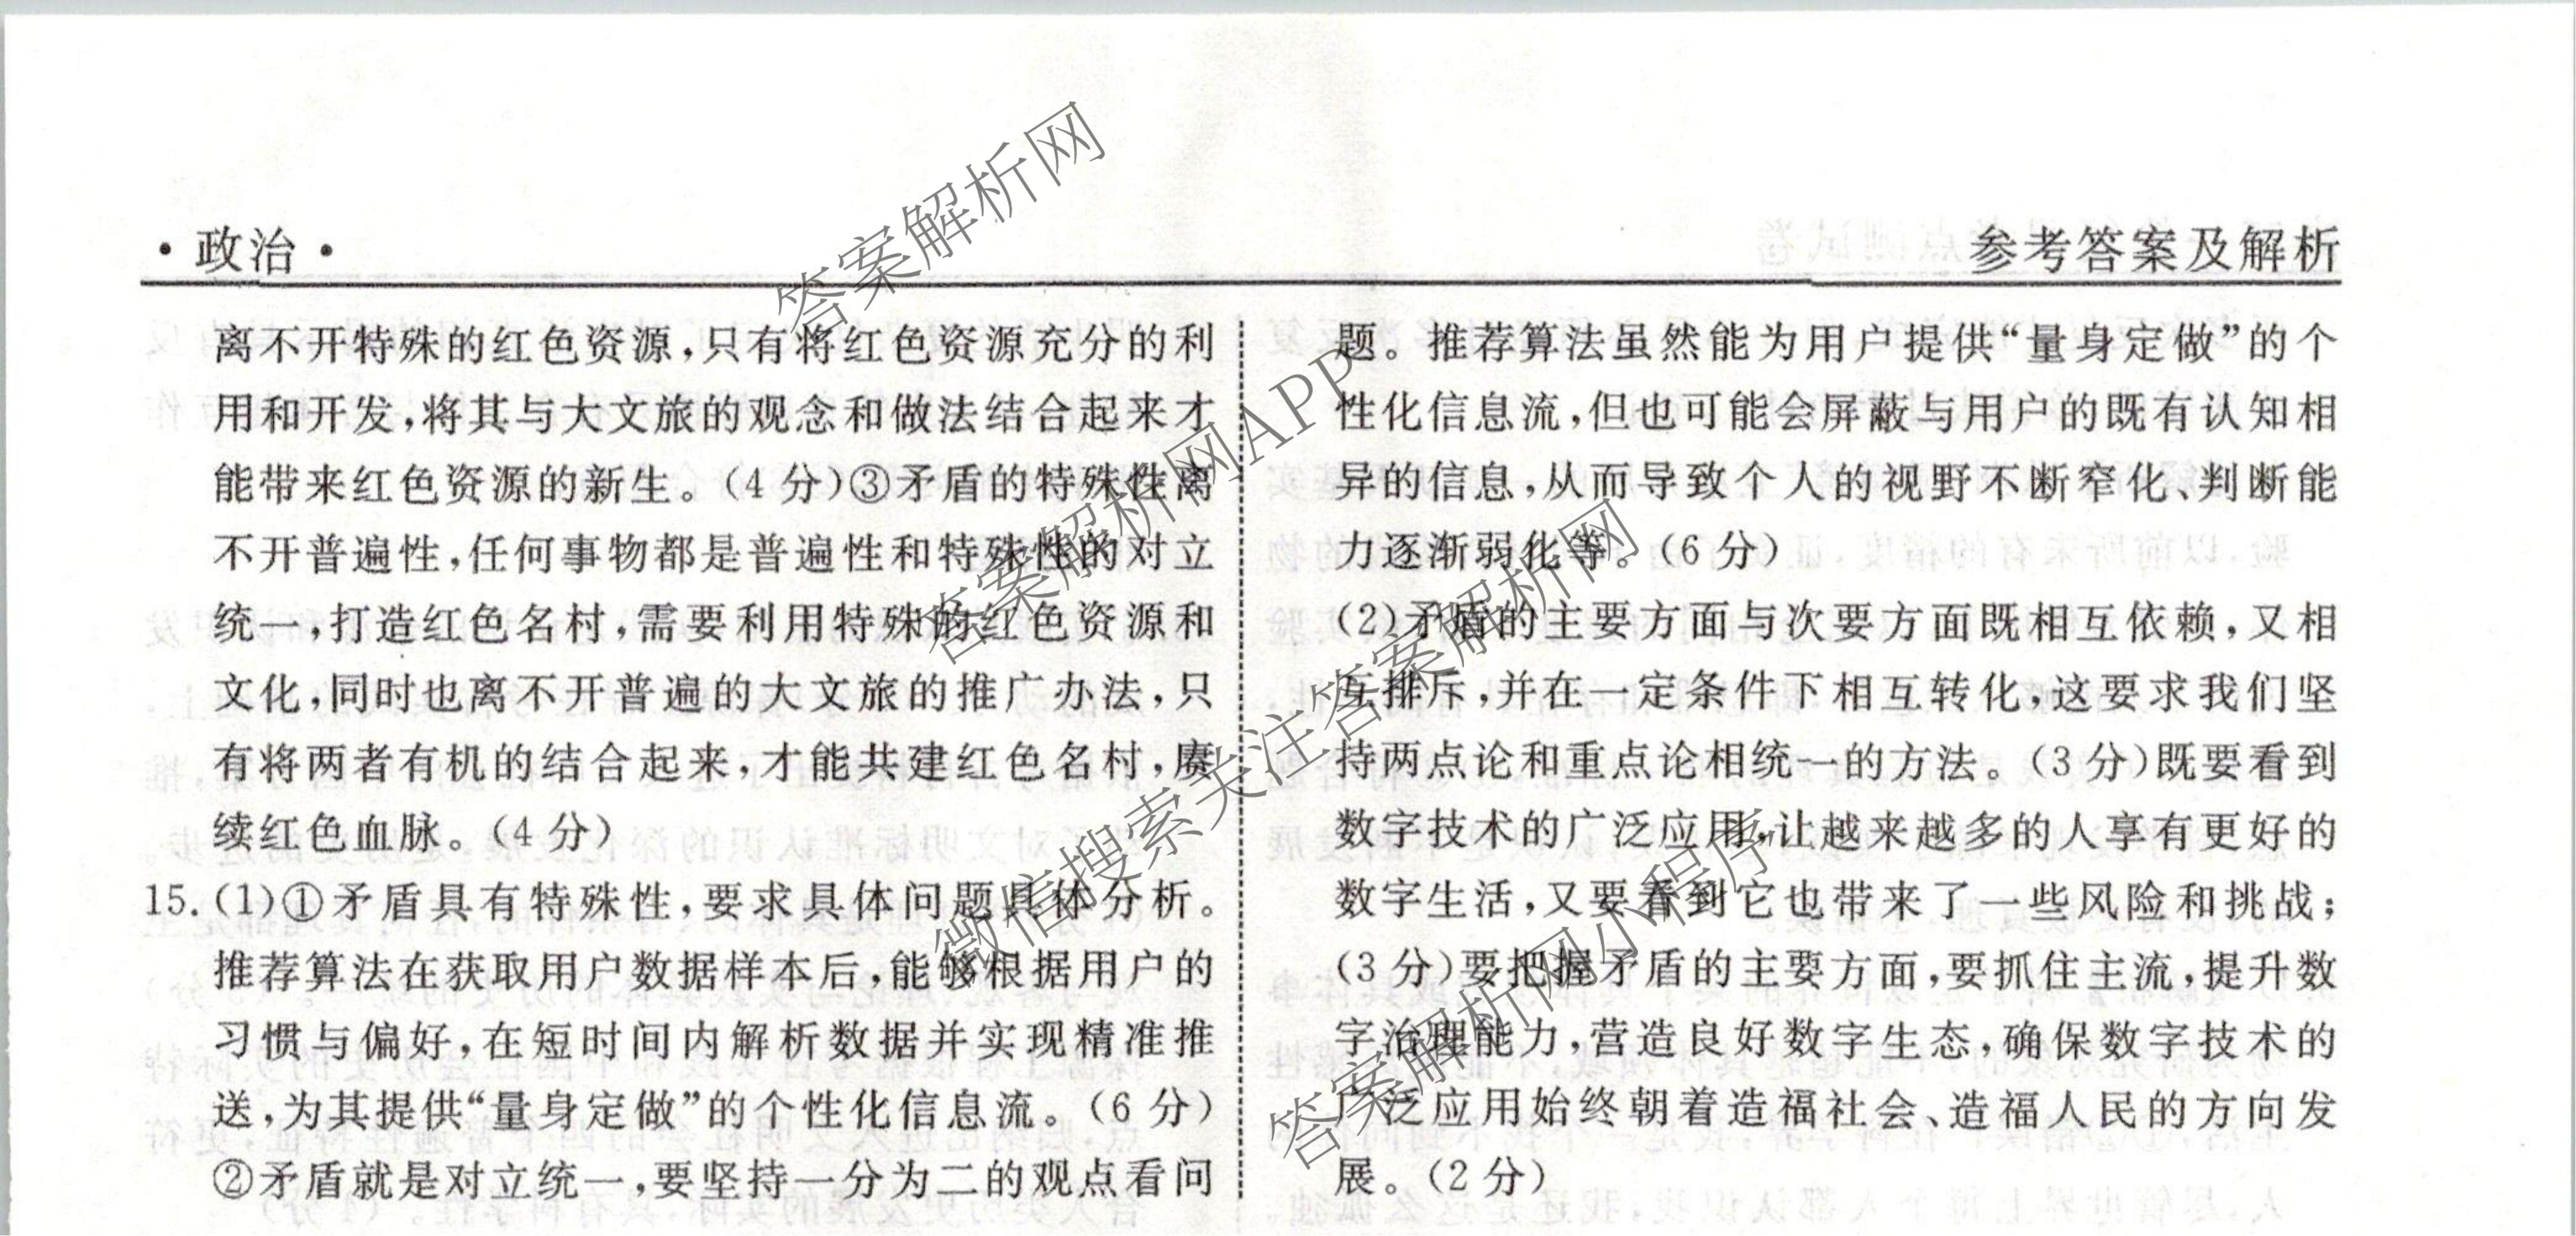 ·政治·
参考答案及解析
离不开特殊的红色资源,只有将红色资源充分的利
用和开发,将其与大文旅的观念和做法结合起来才
能带来红色资源的新生。(4分)③矛盾的特殊性离
不开普遍性,任何事物都是普遍性和特殊性的对立
统一,打造红色名村,需要利用特殊的红色资源和
文化,同时也离不开普遍的大文旅的推广办法,只
有将两者有机的结合起来,才能共建红色名村,赓
续红色血脉。(4分)
15.(1)①矛盾具有特殊性,要求具体问题具体分析。
推荐算法在获取用户数据样本后,能够根据用户的
习惯与偏好,在短时间内解析数据并实现精准推
送,为其提供“量身定做”的个性化信息流。(6分)
②矛盾就是对立统一,要坚持一分为二的观点看问
题。推荐算法虽然能为用户提供“量身定做”的个
性化信息流,但也可能会屏蔽与用户的既有认知相
异的信息,从而导致个人的视野不断窄化、判断能
力逐渐弱化等。(6分)
(2)矛盾的主要方面与次要方面既相互依赖,又相
互排斥,并在一定条件下相互转化,这要求我们坚
持两点论和重点论相统一的方法。(3分)既要看到
数字技术的广泛应用,让越来越多的人享有更好的
数字生活,又要看到它也带来了一些风险和挑战;
(3分)要把握矛盾的主要方面,要抓住主流,提升数
字治理能力,营造良好数字生态,确保数字技术的
广泛应用始终朝着造福社会、造福人民的方向发
展。(2分)
答案解析网
答案解析网APP
微信搜索关注答案解析网
答案解析网小程序